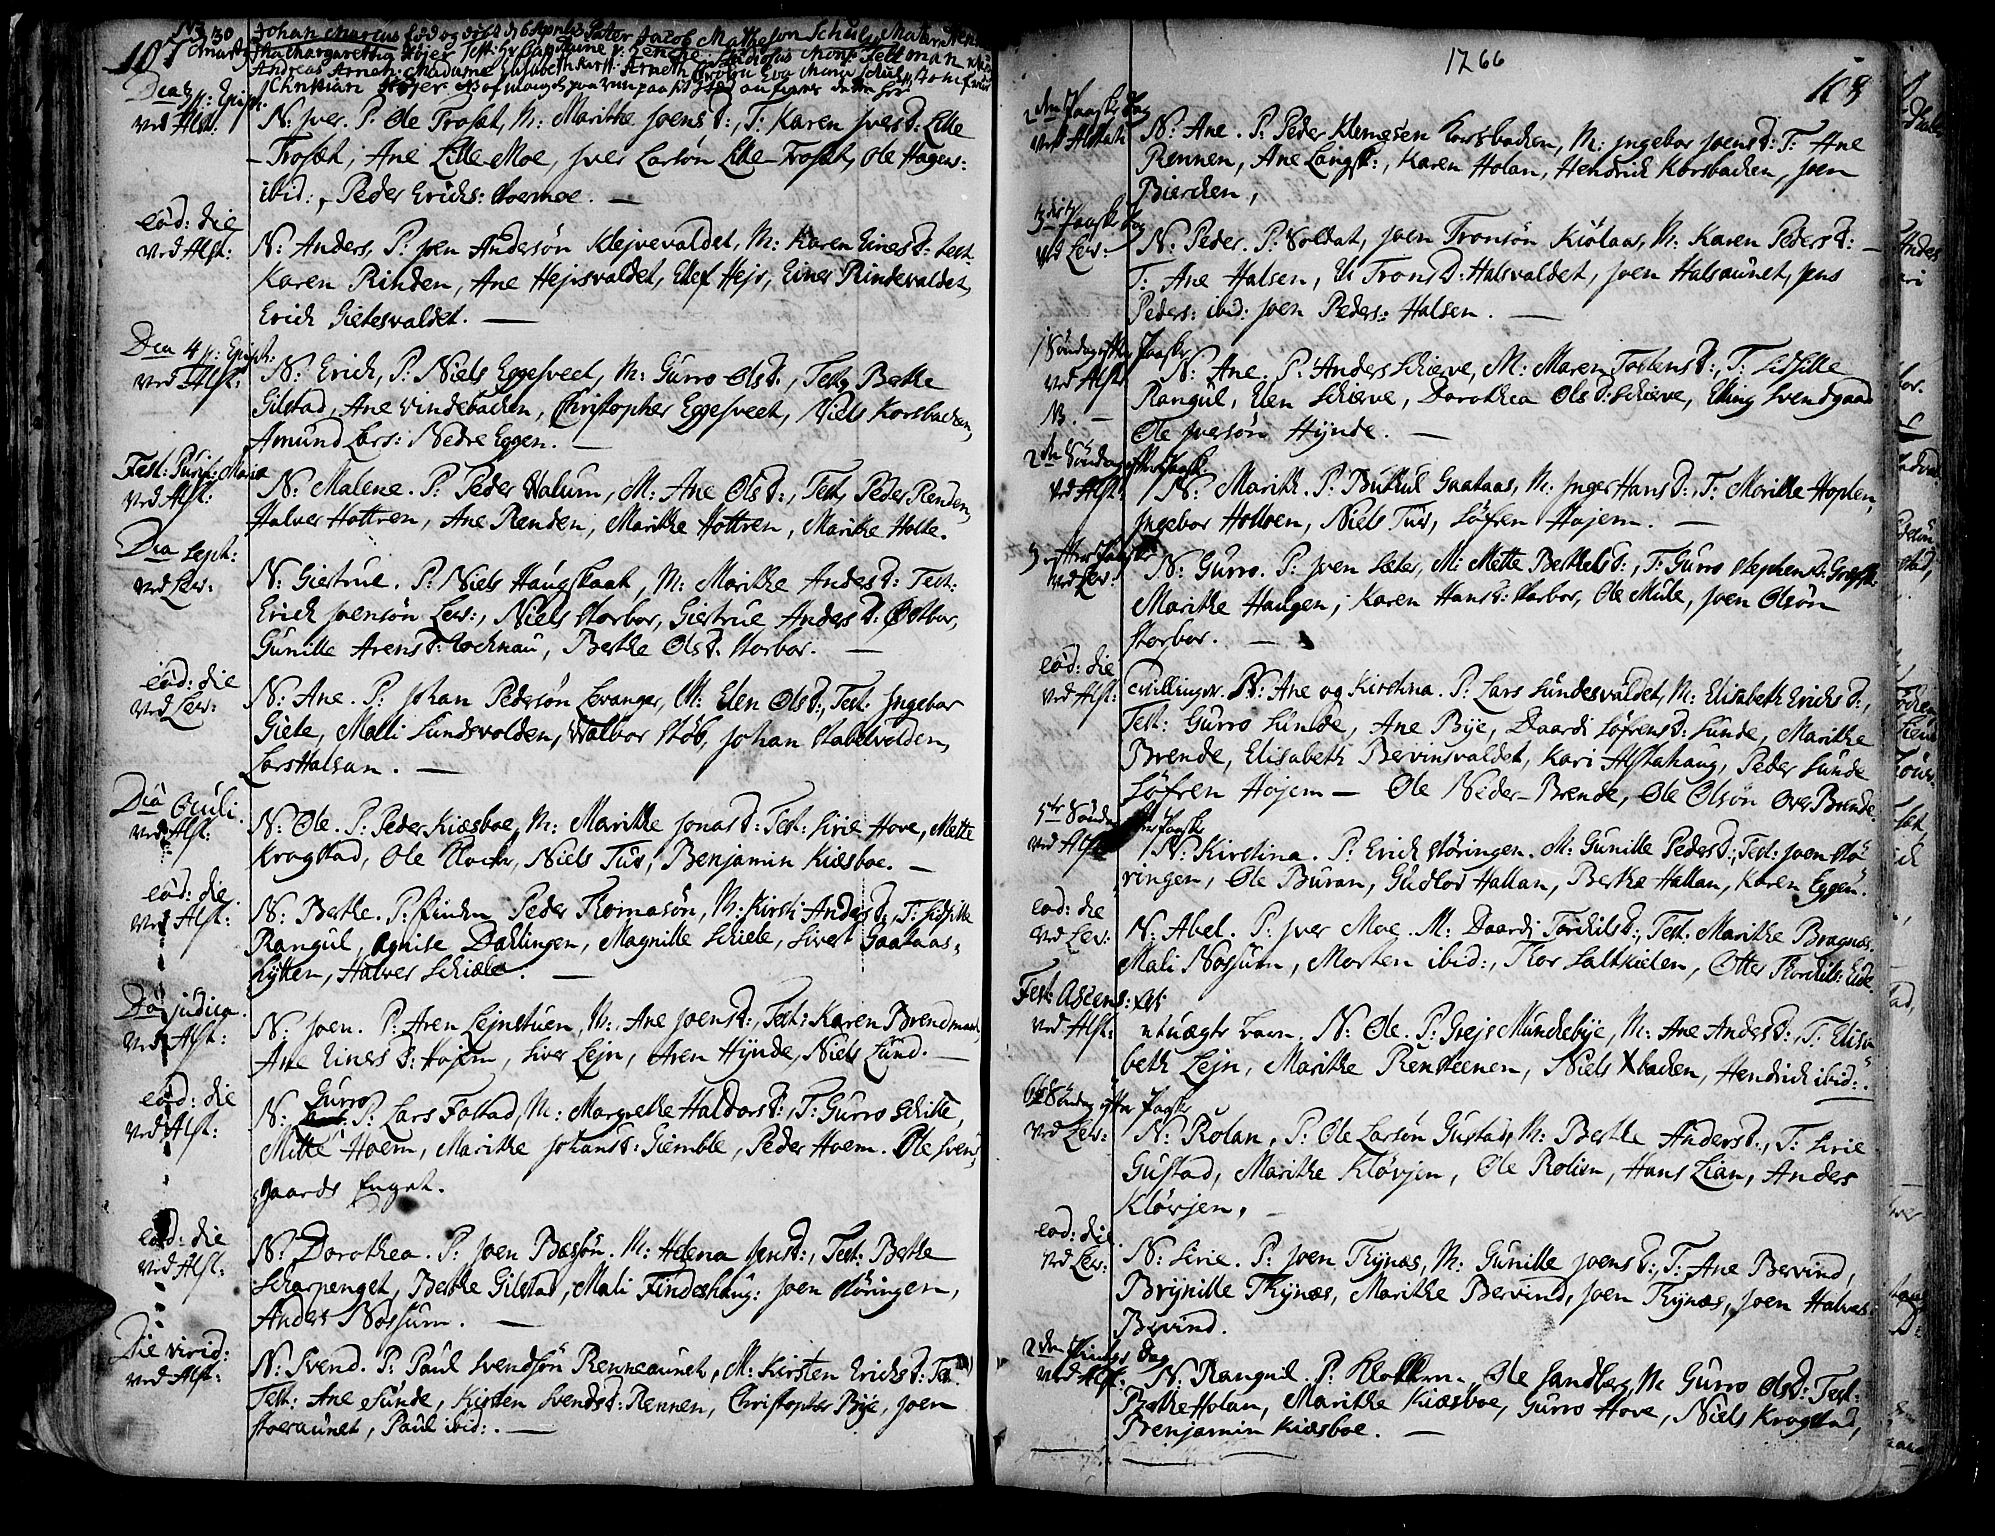 107
Johan Marcus fød og døbt d 6 April Pater Jacob Matheson Schultz Mater
Andreas Arneth: Madame Elisabeth
Christian Høyer
Dca 3 p: Epiph:
ved Alst:
N: Iver. P: Ole Trosæt, M: Marithe Joens D:, T: Karen Ivers D: Lille
Trosæt, Ane Lille Moe, Iver Larsøn Lille Trosæt, Ole Hagens:
ibid:, Peder Erichs: Stoermoe. —
eod: die
ved Alst:
N: Anders, P: Joen Andersøn Klejvevaldet, M: Karen Eines D: Test:
Karen Rinden, Ane Hejsvaldet, Ellef Hejr, Einer Rindevaldet,
Erich Gietesvaldet. —
Dca 4 p: Epiph:
ved Alst:
N: Erich, P: Niels Eggesveet, M: Gurro Ols D:, Test: Bethe
Gilstad, Ane Vindebachen, Christopher Eggesveet, Niels Korsbachen,
Amund Lars: Nedre Eggen. —
Fest: Purif: Maria
ved Alst:
N: Malene. P: Peder Walum, M: Ane Ols D:, Test: Peder Renden,
Halver Hottren, Ane Renden, Marithe Hottren, Marithe Holte.
Dca Sept:
ved Lev:
N: Giertrue. P: Niels Haugskaat, M: Marithe Anders D: Test:
Erich Joensøn Lev:, Niels Storbor, Giertrue Anders D: Østbor,
Gunille Arens D: Kochnau, Berthe Ols D. Storbor. —
eod: die
ved Lev:
N: Ane. P: Johan Pedersøn Levanger, M: Elen Ols D:, Test: Ingebor
Giete, Malli Sundsvolden, Walbor Støb, Johan Stabelvolden,
Lars Halsan. —
Dca Oculi.
ved Alst:
N: Ole. P: Peder Kiesboe, M: Marithe Jonas D: Test: Sirie Hove, Mette
Krogstad, Ole Kloch, Niels Tuv, Benjamin Kiesboe. —
eod: die
ved Alst:
N: Berthe. P: Finden Peder Thomasøn, M: Kirsti Anders D:, T: Sidselle
Rangul, Agnise Dahlingen, Magnille Schiele, Sivert Gaataas-
hytten, Halver Schiele. —
Dca judica.
ved Alst:
N: Joen. P: Aren Lejnstuen, M: Ane Joens D:, Test: Karen Brendmarch
Ane Einers D: Hojem, Siver Lejn, Aren Hynde, Niels Lund. —
eod: die
ved Alst:
Gurro
N: P: Lars Fostad, M: Margrethe Haldors D:, T: Gurro Schitte,
Mitte Hoem, Marithe Johans D: Giemble, Peder Hoem. Ole Sven-
gaards Enget.
eod: die
ved Alst:
N: Dorothea. P: Joen Bersøn. M: Helena Jens D:, Test: Bethe
Scharpenget, Berthe Gilstad, Mali Findeshaug: Joen Støringen,
Anders Nossum. —
Die Virid:
ved Alst:
N: Svend. P: Paul Svendsøn Renneaunet, M: Kirsten Erichs D:
Test: Ane Sunde, Kirsten Svends D: Rennen, Christopher Bye, Joen
Stoeraunet, Paul ibid:. —
1766
108
2den Paaske Dag
ved Alstah
N: Ane. P: Peder Klemesen Korsbachen, M: Ingebor Joens D: T: Ane
Rennen, Ane Langsk:, Karen Holan, Hendrich Korsbachen, Joen
Bierchen,
3die Paaske Dag
ved Lev:
N: Peder. P: Soldat, Joen Tronsøn Kiølaas, M: Karen Peders D: —
T: Ane Halsen, Eli Trons D: Halsvaldet, Joen Halsaunet, Jens
Peders: ibid: Joen Peders: Halsen. —
1 Søndag efter Paaske
ved Alst:
N. —
N: Ane. P: Anders Schierve, M: Maren Tostens D:, T: Sidselle
Rangul, Elen Schierve, Dorothea Ols D: Schierve, Elling Svendgaard
Ole Iversøn Hynde. —
2den Søndag efter Paaske
ved Alst:
N: Marith. P: Buthul Gaataas, M: Inger Hans D:, T: Marithe Hoplen,
Ingebor Holloen, Niels Tuv, Løfren Hojem. —
3 efter Paaske
ved Lev:
N: Gurro. P: Joen Sæter, M: Mette Berthels D:, T: Gurro Stephens D:
Marithe Haugen, Karen Hans D: Storbor, Ole Mule, Joen Olsøn
Storbor. —
eod: die
ved Alst:
Tvillinger. N: Ane og Kirstina. P: Lars Sundesvaldet, M: Elisabeth Erichs D:,
Test: Gurro Sunde, Ane Bye, Daardi Løfrens D: Sunde, Marithe
Brende, Elisabeth Bervinsvaldet, Kari Alstahaug, Peder Sunde
Løfren Hojem — Ole Neder-Brende, Ole Olsøn Over Brende.
5te Søndag efter Paaske
ved Alst:
N: Kirstina. P: Erich Støringen. M: Gunille Peders D:, Test: Joen Stø-
ringen, Ole Buran, Gudlov Hallan, Berthe Hallan, Karen Eggen.
eod: die
ved Lev:
N: Abel. P: Iver Moe. M: Daardi Torchils D:, Test: Marithe Bragnæs.
Mali Nossum, Morten ibid:, Thor Saltkielen, Otter Thorchils: Eide.
Fest: Ascens: Xsti
ved Alst:
uægte barn. N: Ole. P: Grejs Mundebye, M: Ane Anders D:, T: Elisa-
beth Lejn, Marithe Rensteenen, Niels Xbachen, Hendrich ibid:.
6te Søndag efter Paaske
ved Lev:
N: Rolan, P: Ole Larsøn Gustad, M: Berthe Anders D:, T: Sirie
Gustad, Marithe Kløvjen, Ole Rolien, Hans Lian, Anders
Kløvjen,
eod: die
ved Lev:
N: Sirie. P: Joen Thynæs, M: Gunille Joens D:, T: Ane Bervind,
Brynille Thynæs, Marithe Bervind, Joen Thynæs, Joen Halvers
Bervind.
2den Pintze Dag
ved Alst.
N: Rangul P: Klokkeren Ole Sandberg, M: Gurro Ols D: Test:
Berthe Holan, Marithe Kiesboe, Gurro Hove, Niels Krogstad,
Benjamin Kiesboe. —